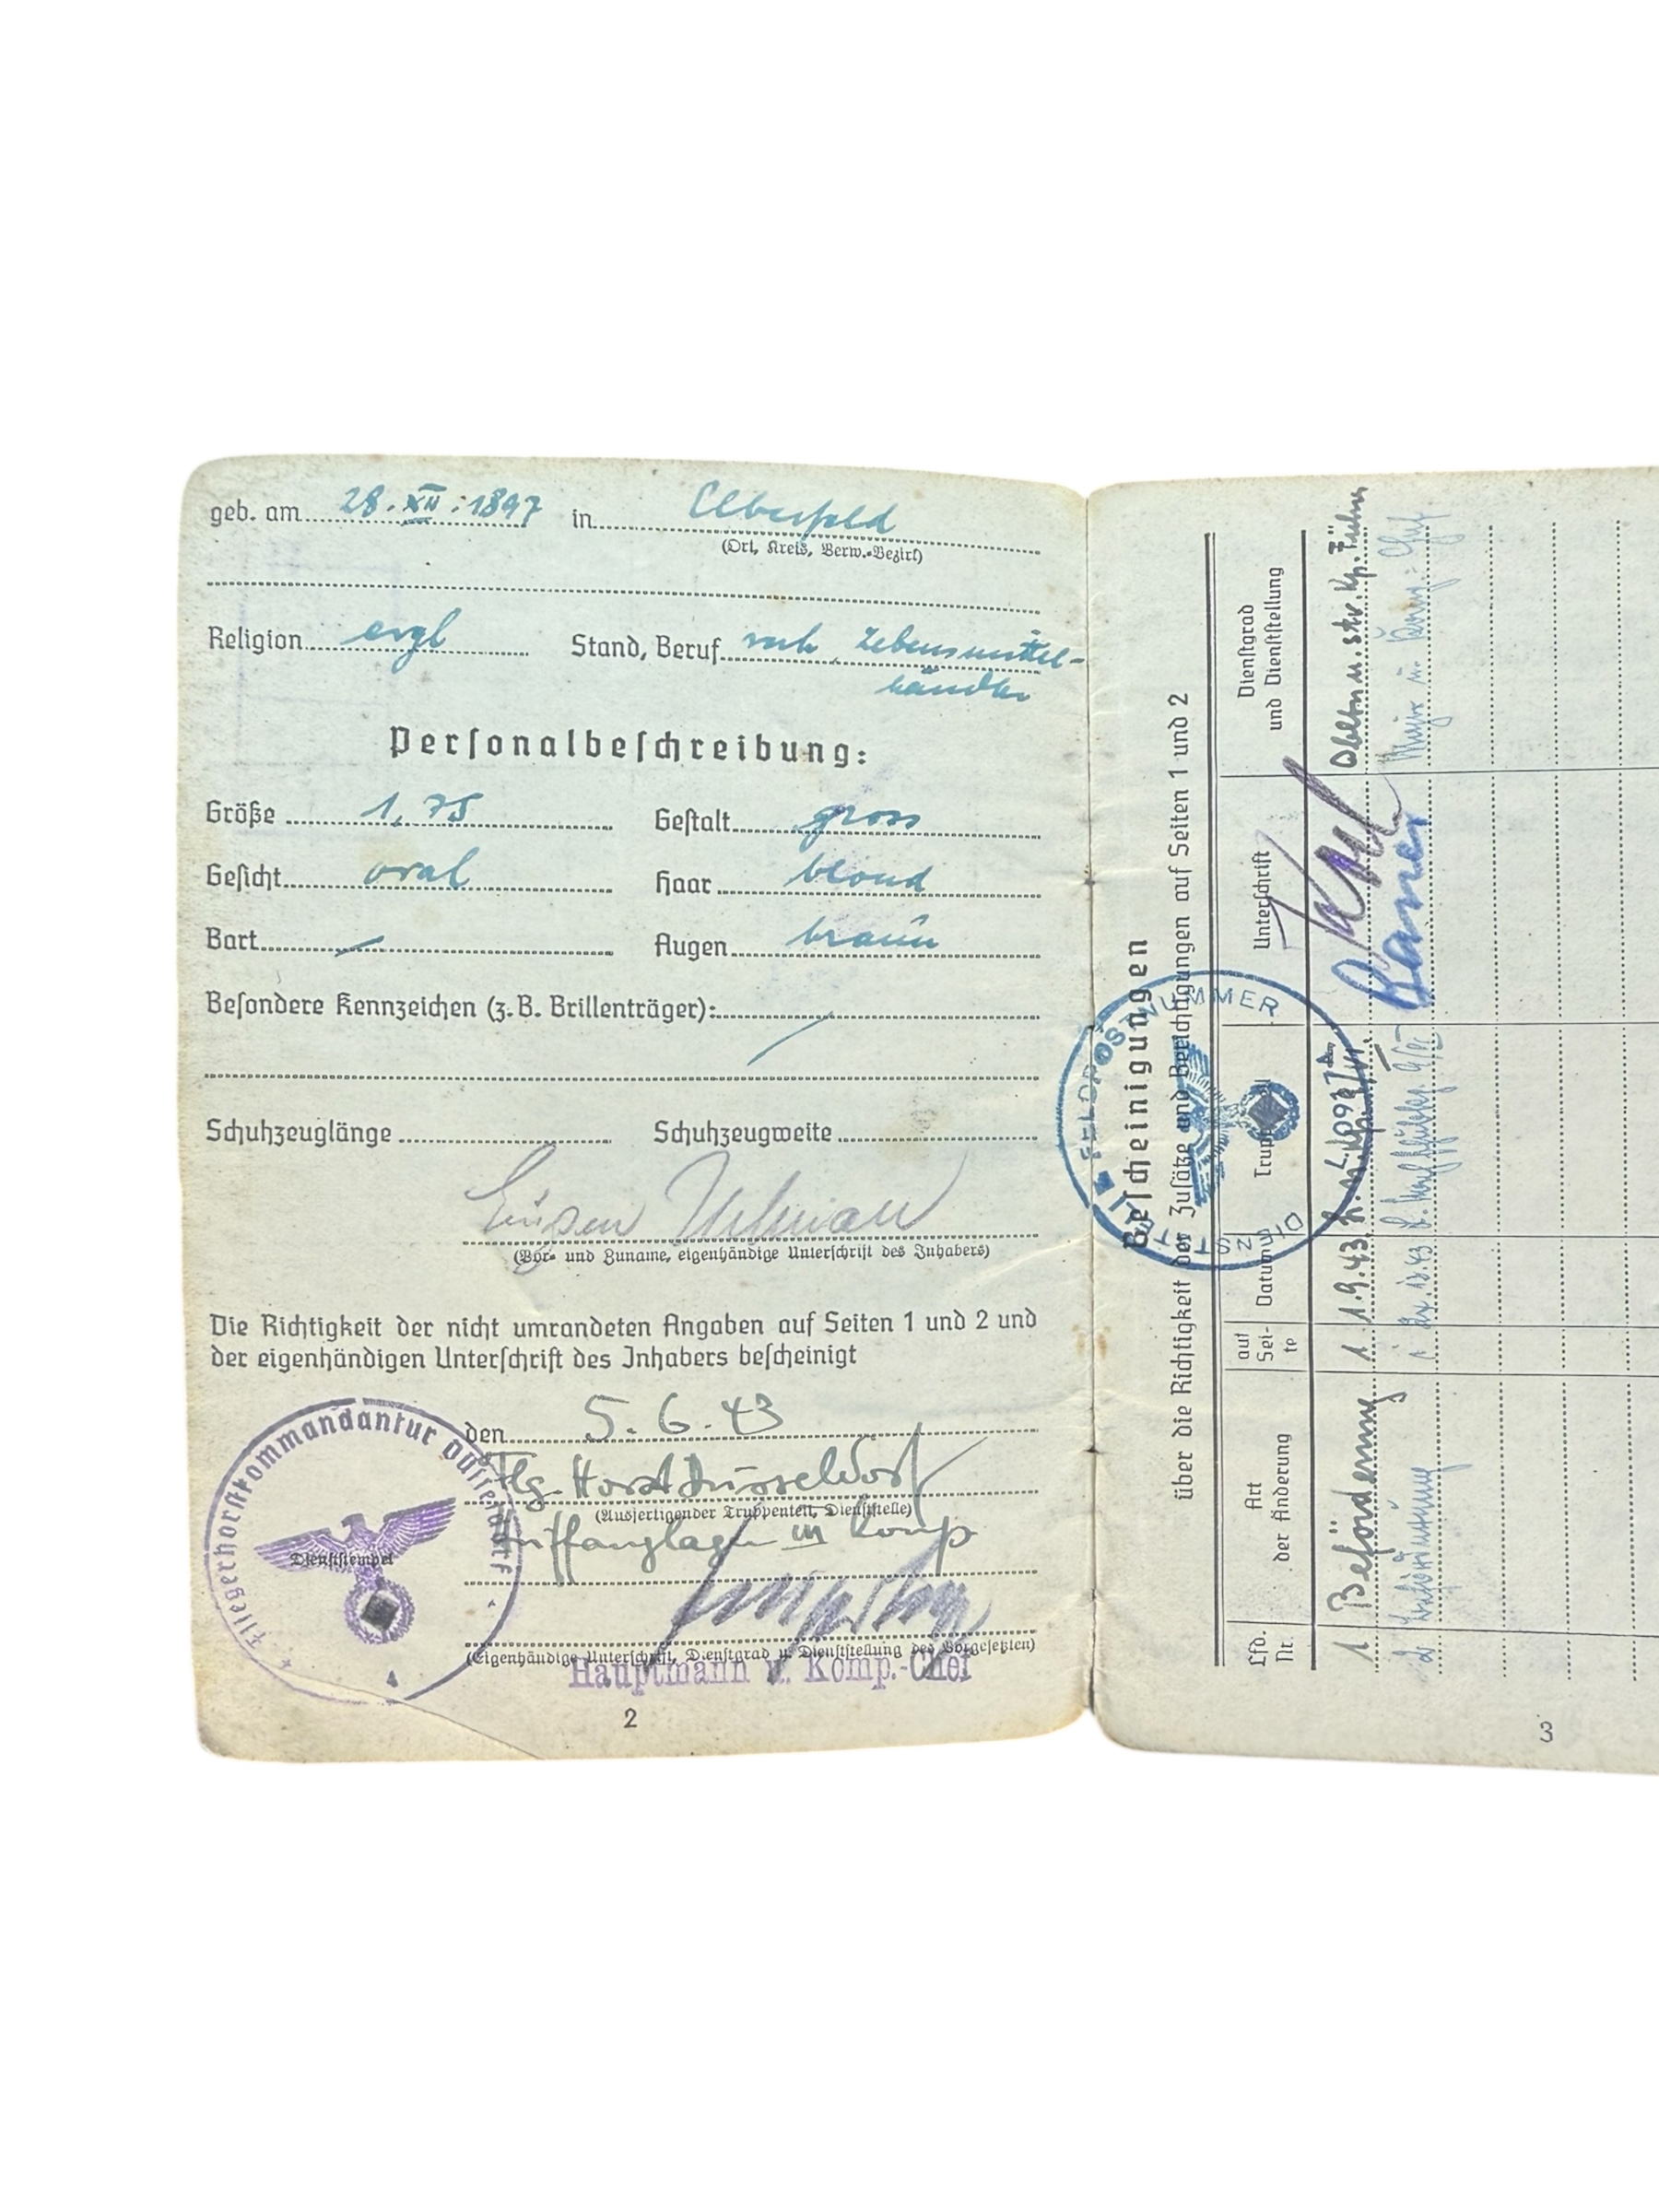 geb. am 28.XII.1897 in Elberfeld
(Ort, Kreis, Verw.-Bezirk)
Religion evgl Stand, Beruf verh. Lebensmittel-
händler
Personalbeschreibung:
Größe 1,75 Gestalt gross
Gesicht oval Haar blond
Bart Augen braun
Besondere Kennzeichen (z.B. Brillenträger):
Schuhzeuglänge Schuhzeugweite
Eugen
(Vor- und Zuname, eigenhändige Unterschrift des Inhabers)
Die Richtigkeit der nicht umrandeten Angaben auf Seiten 1 und 2 und
der eigenhändigen Unterschrift des Inhabers bescheinigt
den 5.6.43
Flg. Horst Düsseldorf
(Ausfertigender Truppenteil, Dienststelle)
III Komp
(Eigenhändige Unterschrift, Dienstgrad u. Dienststellung des Vorgesetzten)
Hauptmann u. Komp.-Chef
Fliegerhorstkommandantur Düsseldorf
Dienststempel
2
Bescheinigungen
über die Richtigkeit der Zusätze und Berichtigungen auf Seiten 1 und 2
Lfd. Nr. Art der Änderung auf Seite Datum Truppenteil Unterschrift Dienstgrad und Dienststellung
1 Beförderung 1 1.9.43
2 Beförderung 1
DIENSTSTELLE FELDPOSTNUMMER
3